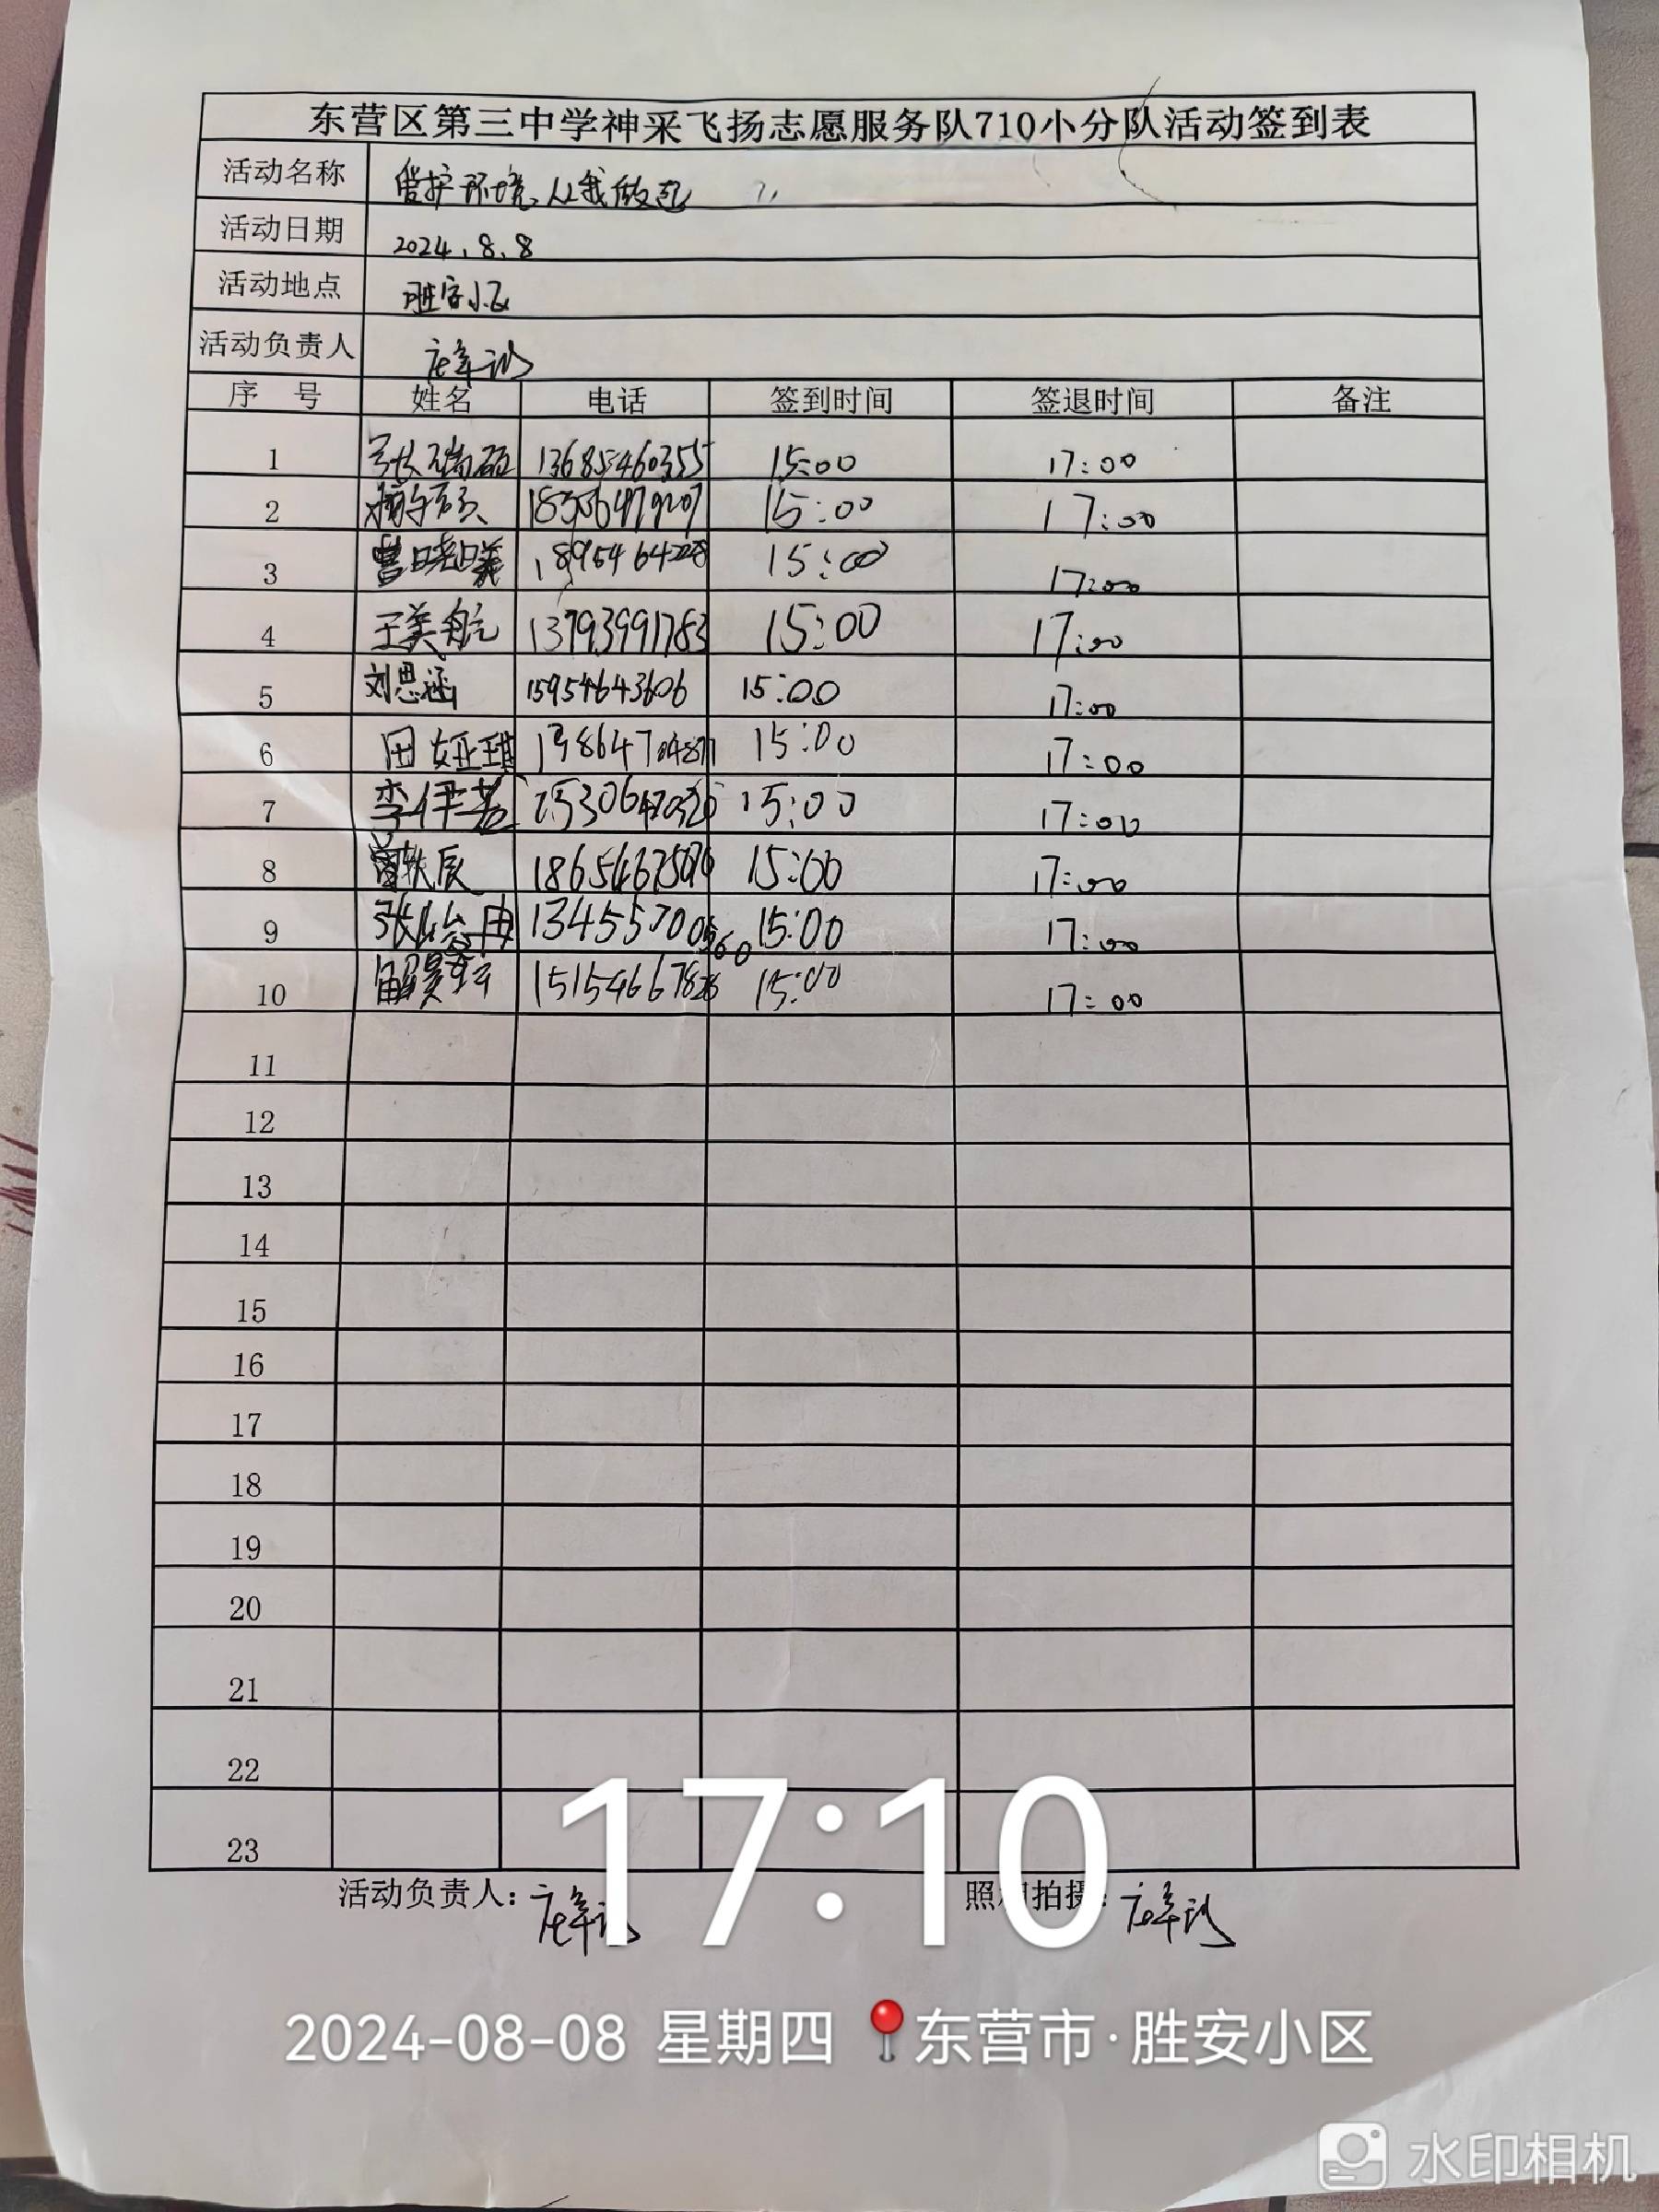 东营区第三中学神采飞扬志愿服务队710小分队活动签到表
活动名称 爱护环境、从我做起
活动日期 2024.8.8
活动地点 胜安小区
活动负责人
序 号 姓名 电话 签到时间 签退时间 备注
1 张瑞硕 13685460355 15:00 17:00
2 15:00 17:00
3 曹晓曦 15:00 17:00
4 王美航 13793991783 15:00 17:00
5 刘思涵 15954643606 15:00 17:00
6 田娅琪 15:00 17:00
7 李伊若 15:00 17:00
8 曾轶辰 15:00 17:00
9 15:00 17:00
10 15:00 17:00
11
12
13
14
15
16
17
18
19
20
21
22
23
活动负责人: 照相拍摄:
17:10
2024-08-08 星期四 东营市·胜安小区
水印相机